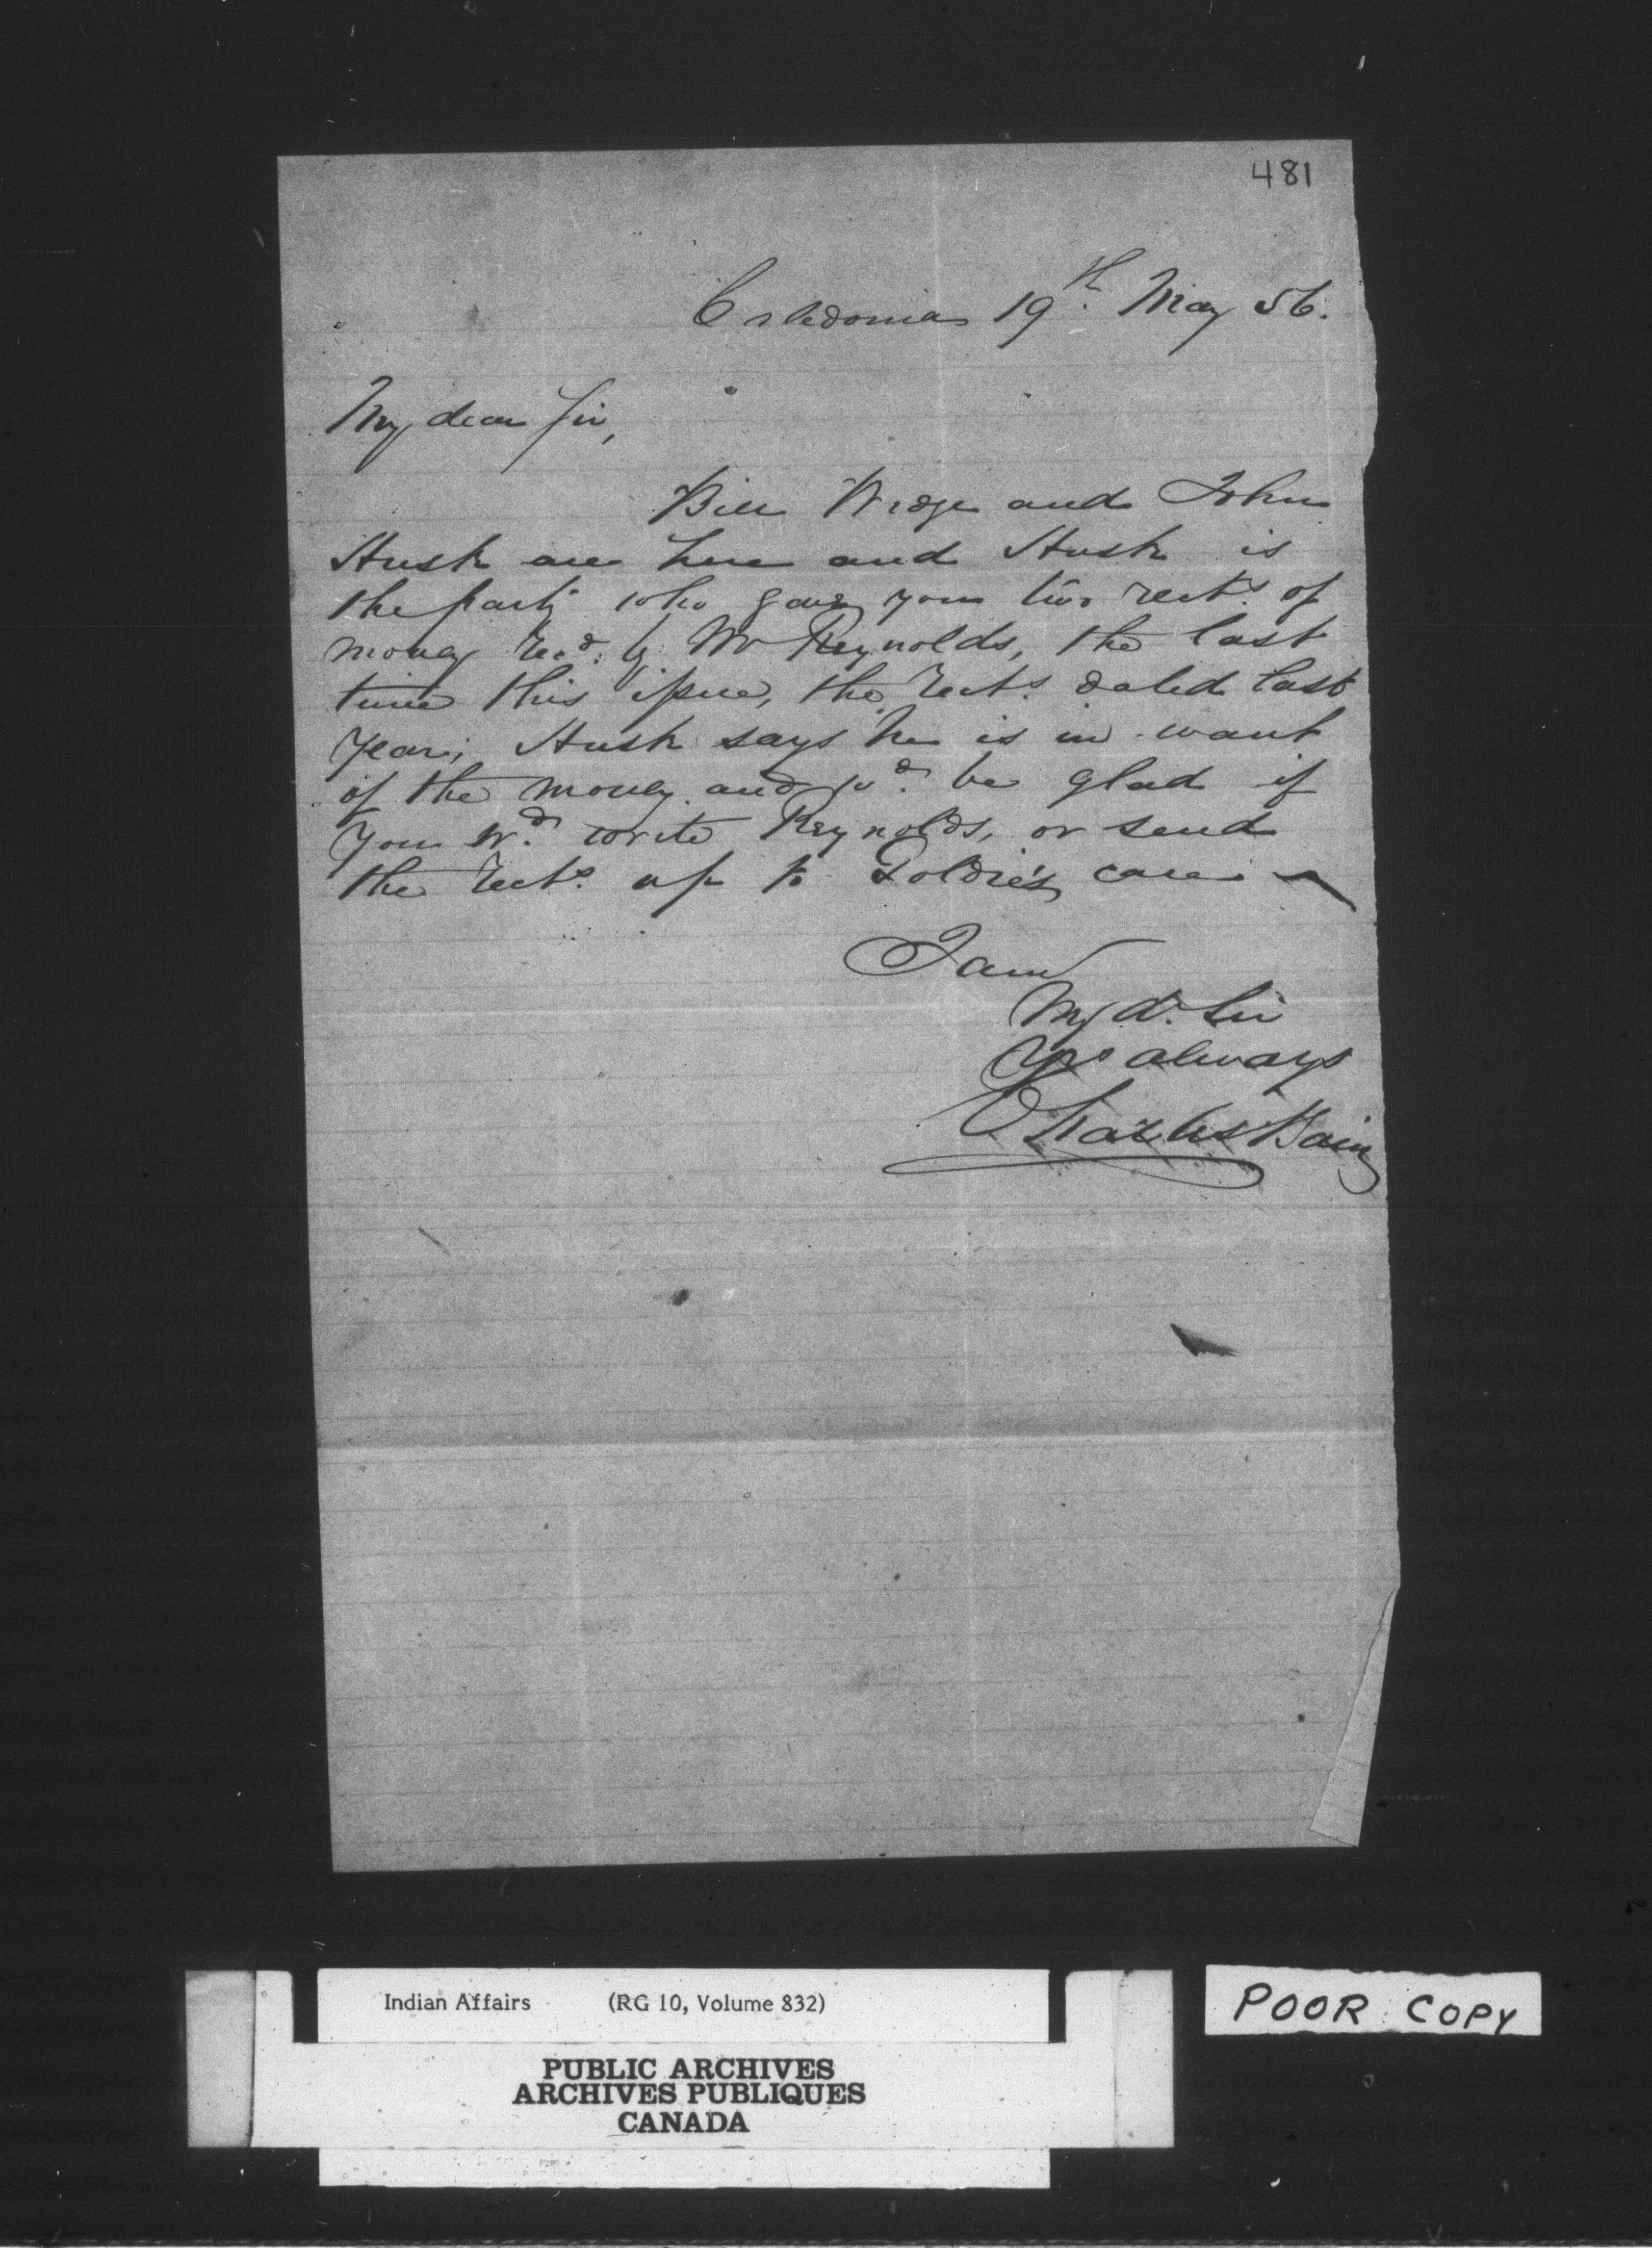 481
Caledonia 19th May 56.
My dear Sir,
Bill Wedge and John
Husk are here and Husk is
the party who gave you two rects. of
money recd. by Mr Reynolds, the last
time this issue, the rects. dated last
year; Husk says he is in want
of the money and wd. be glad if
you wd. write Reynolds, or send
the rects. up to Goldie's care
I am
My d. Sir
Yrs always
Charles Bain
Indian Affairs (RG 10, Volume 832)
POOR COPY
PUBLIC ARCHIVES
ARCHIVES PUBLIQUES
CANADA